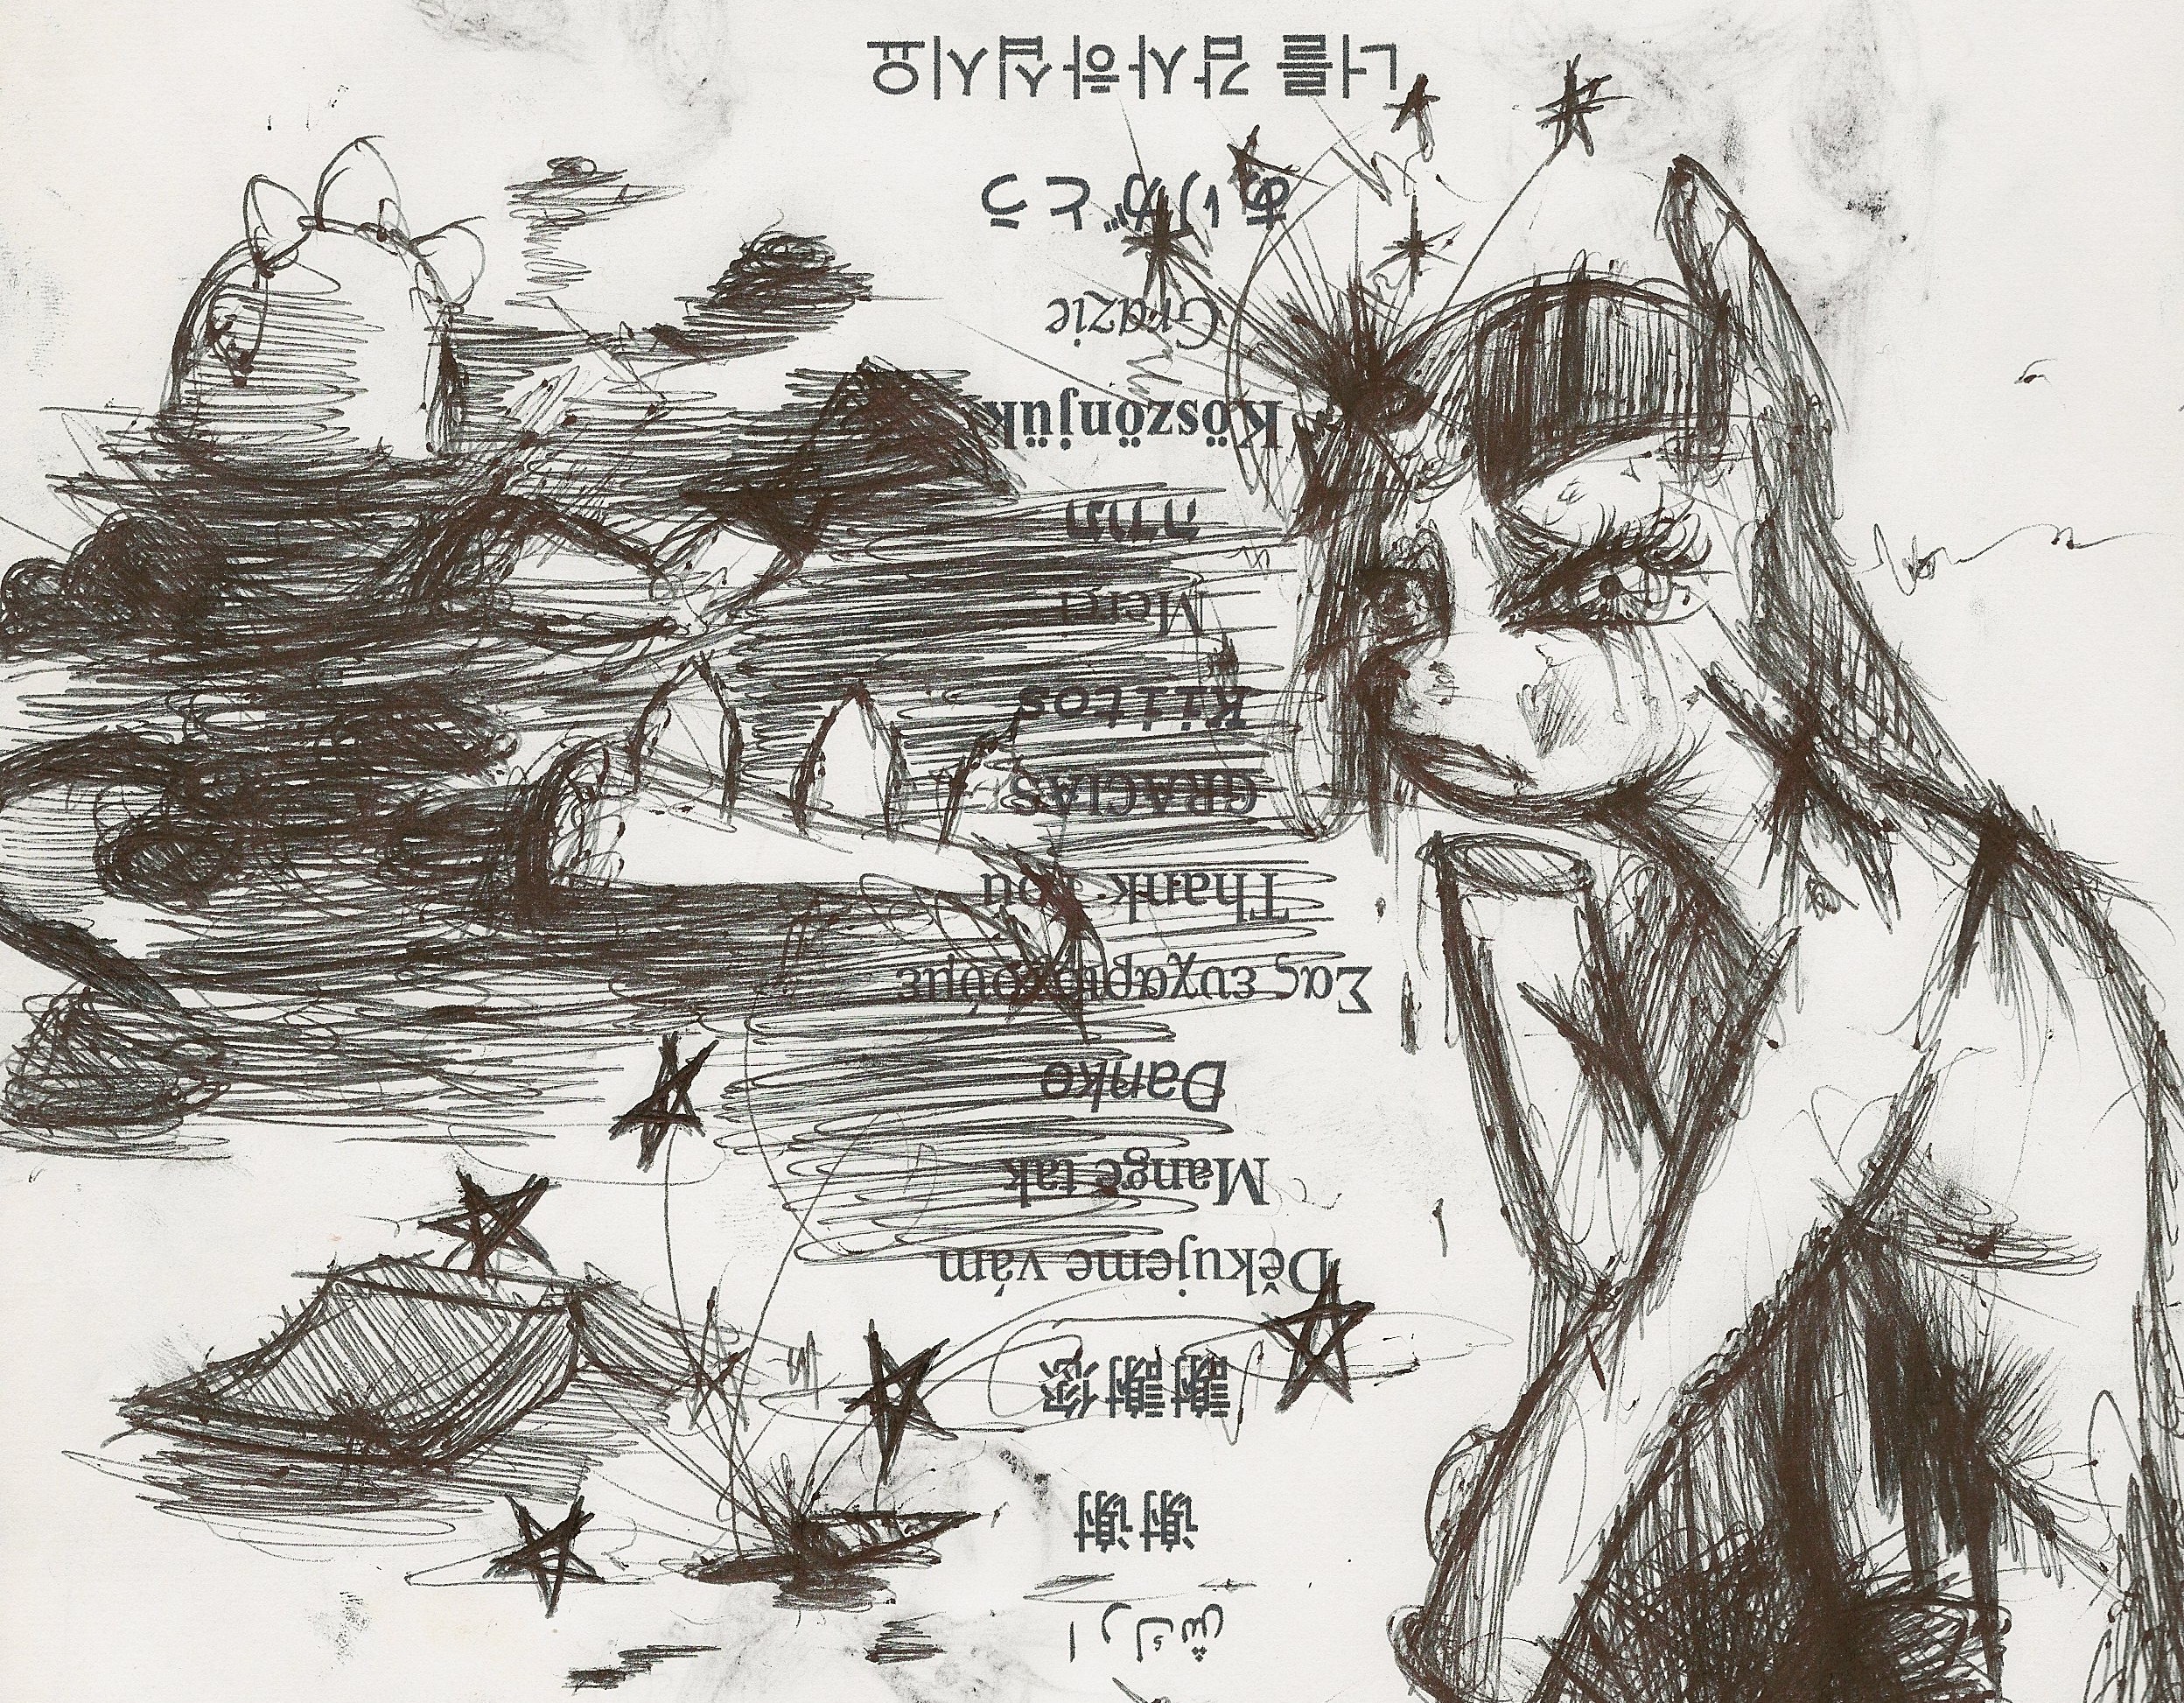 شكرا
谢谢
謝謝您
Děkujeme vám
Mange tak
Danke
Σας ευχαριστούμε
Thank you
GRACIAS
Kiitos
Merci
תודה
Köszönjük
Grazie
ありがとう
너를 감사하십시요